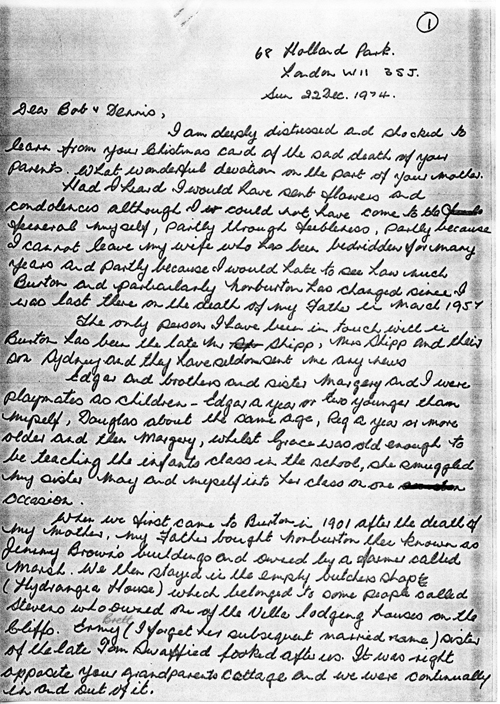 1
68 Holland Park.
London W11 3SJ.
Sun 22 Dec. 1974.
Dear Bob & Dennis,
I am deeply distressed and shocked to
learn from your Christmas card of the sad death of your
Parents. What wonderful devotion on the part of your Mother.
Had I heard I would have sent flowers and
condolences although I could not have come to the
funeral myself, partly through feebleness, partly because
I cannot leave my wife who has been bedridden for many
years and partly because I would hate to see how much
Burton and particularly Norburton has changed since I
was last there on the death of my Father in March 1957
The only person I have been in touch with in
Burton has been the late Mr Shipp, Mrs Shipp and their
son Sydney and they have seldom sent me any news
Edgar and brothers and sister Margery and I were
playmates as children - Edgar a year or two younger than
myself, Douglas about the same age, Reg a year or more
older and then Margery, whilst Grace was old enough to
be teaching the infants class in the school, she smuggled
my sister May and myself into her class on one
occasion.
When we first came to Burton in 1901 after the death of
my Mother, my Father bought Norburton then known as
Jimmy Brown's buildings and owned by a farmer called
Marsh. We then stayed in the empty butchers shop
(Hydrangia House) which belonged to some people called
Stevens who owned one of the Villa lodging houses on the
Cliffs. (I forget her subsequent married name) sister
of the late Tom Swaffied looked after us. It was right
opposite your grandparents cottage and we were continually
in and out of it.